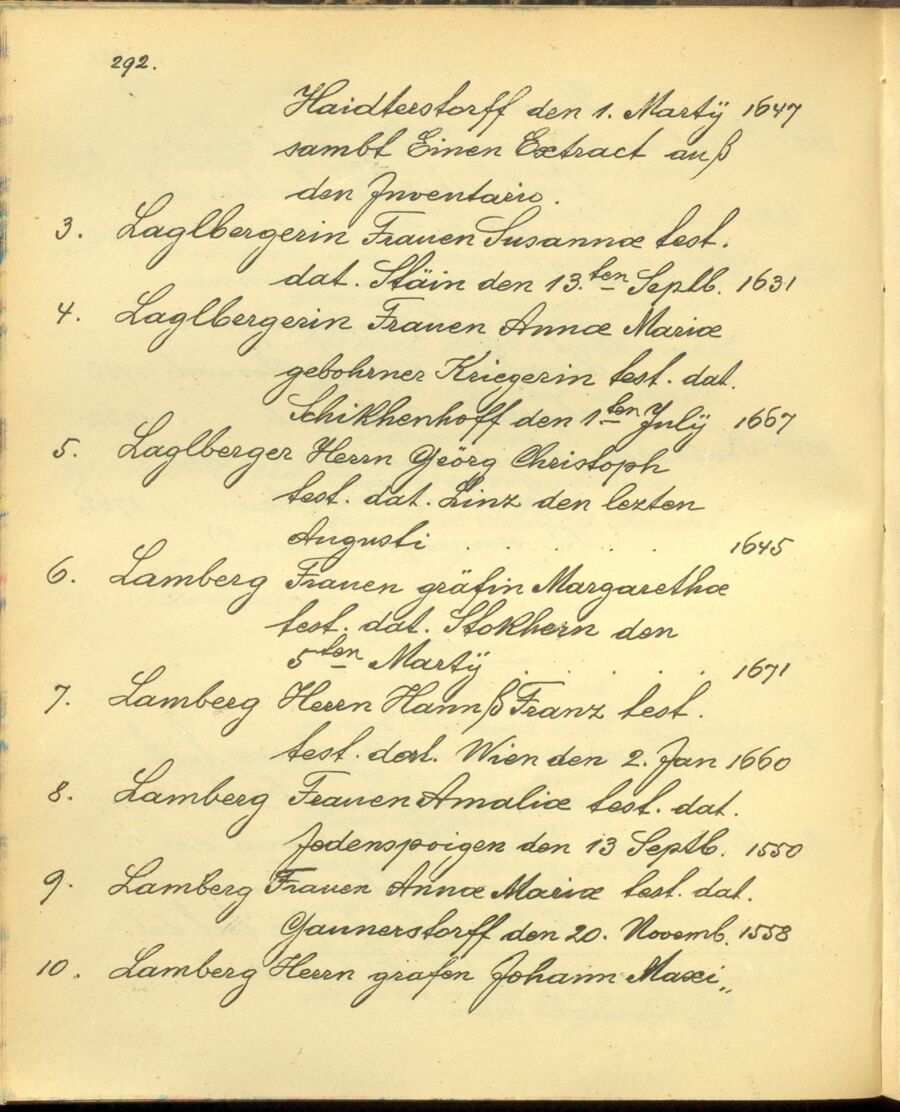 292.
Haidterstorff den 1. Martÿ 1647
sambt Einen Extract auß
den Inventario.
3. Laglbergerin Frauen Susannæ test.
dat. Stäin den 13.ten Septb. 1631
4. Laglbergerin Frauen Annæ Mariæ
gebohrner Kriegerin test. dat.
Schikhenhoff den 1ten Julÿ 1667
5. Laglberger Herrn Geörg Christoph
test. dat. Linz den lezten
Augusti . . . . . 1645
6. Lamberg Frauen gräfin Margarethæ
test. dat. Stokhern den
5ten Martÿ . . . . . 1671
7. Lamberg Herrn Hannß Franz test.
test. dat. Wien den 2. Jan 1660
8. Lamberg Frauen Amaliæ test. dat.
Jedenspoigen den 13 Septb. 1550
9. Lamberg Frauen Annæ Mariæ test. dat.
Gaunerstorff den 20. Novemb. 1558
10. Lamberg Herrn grafen Johann Maxi„